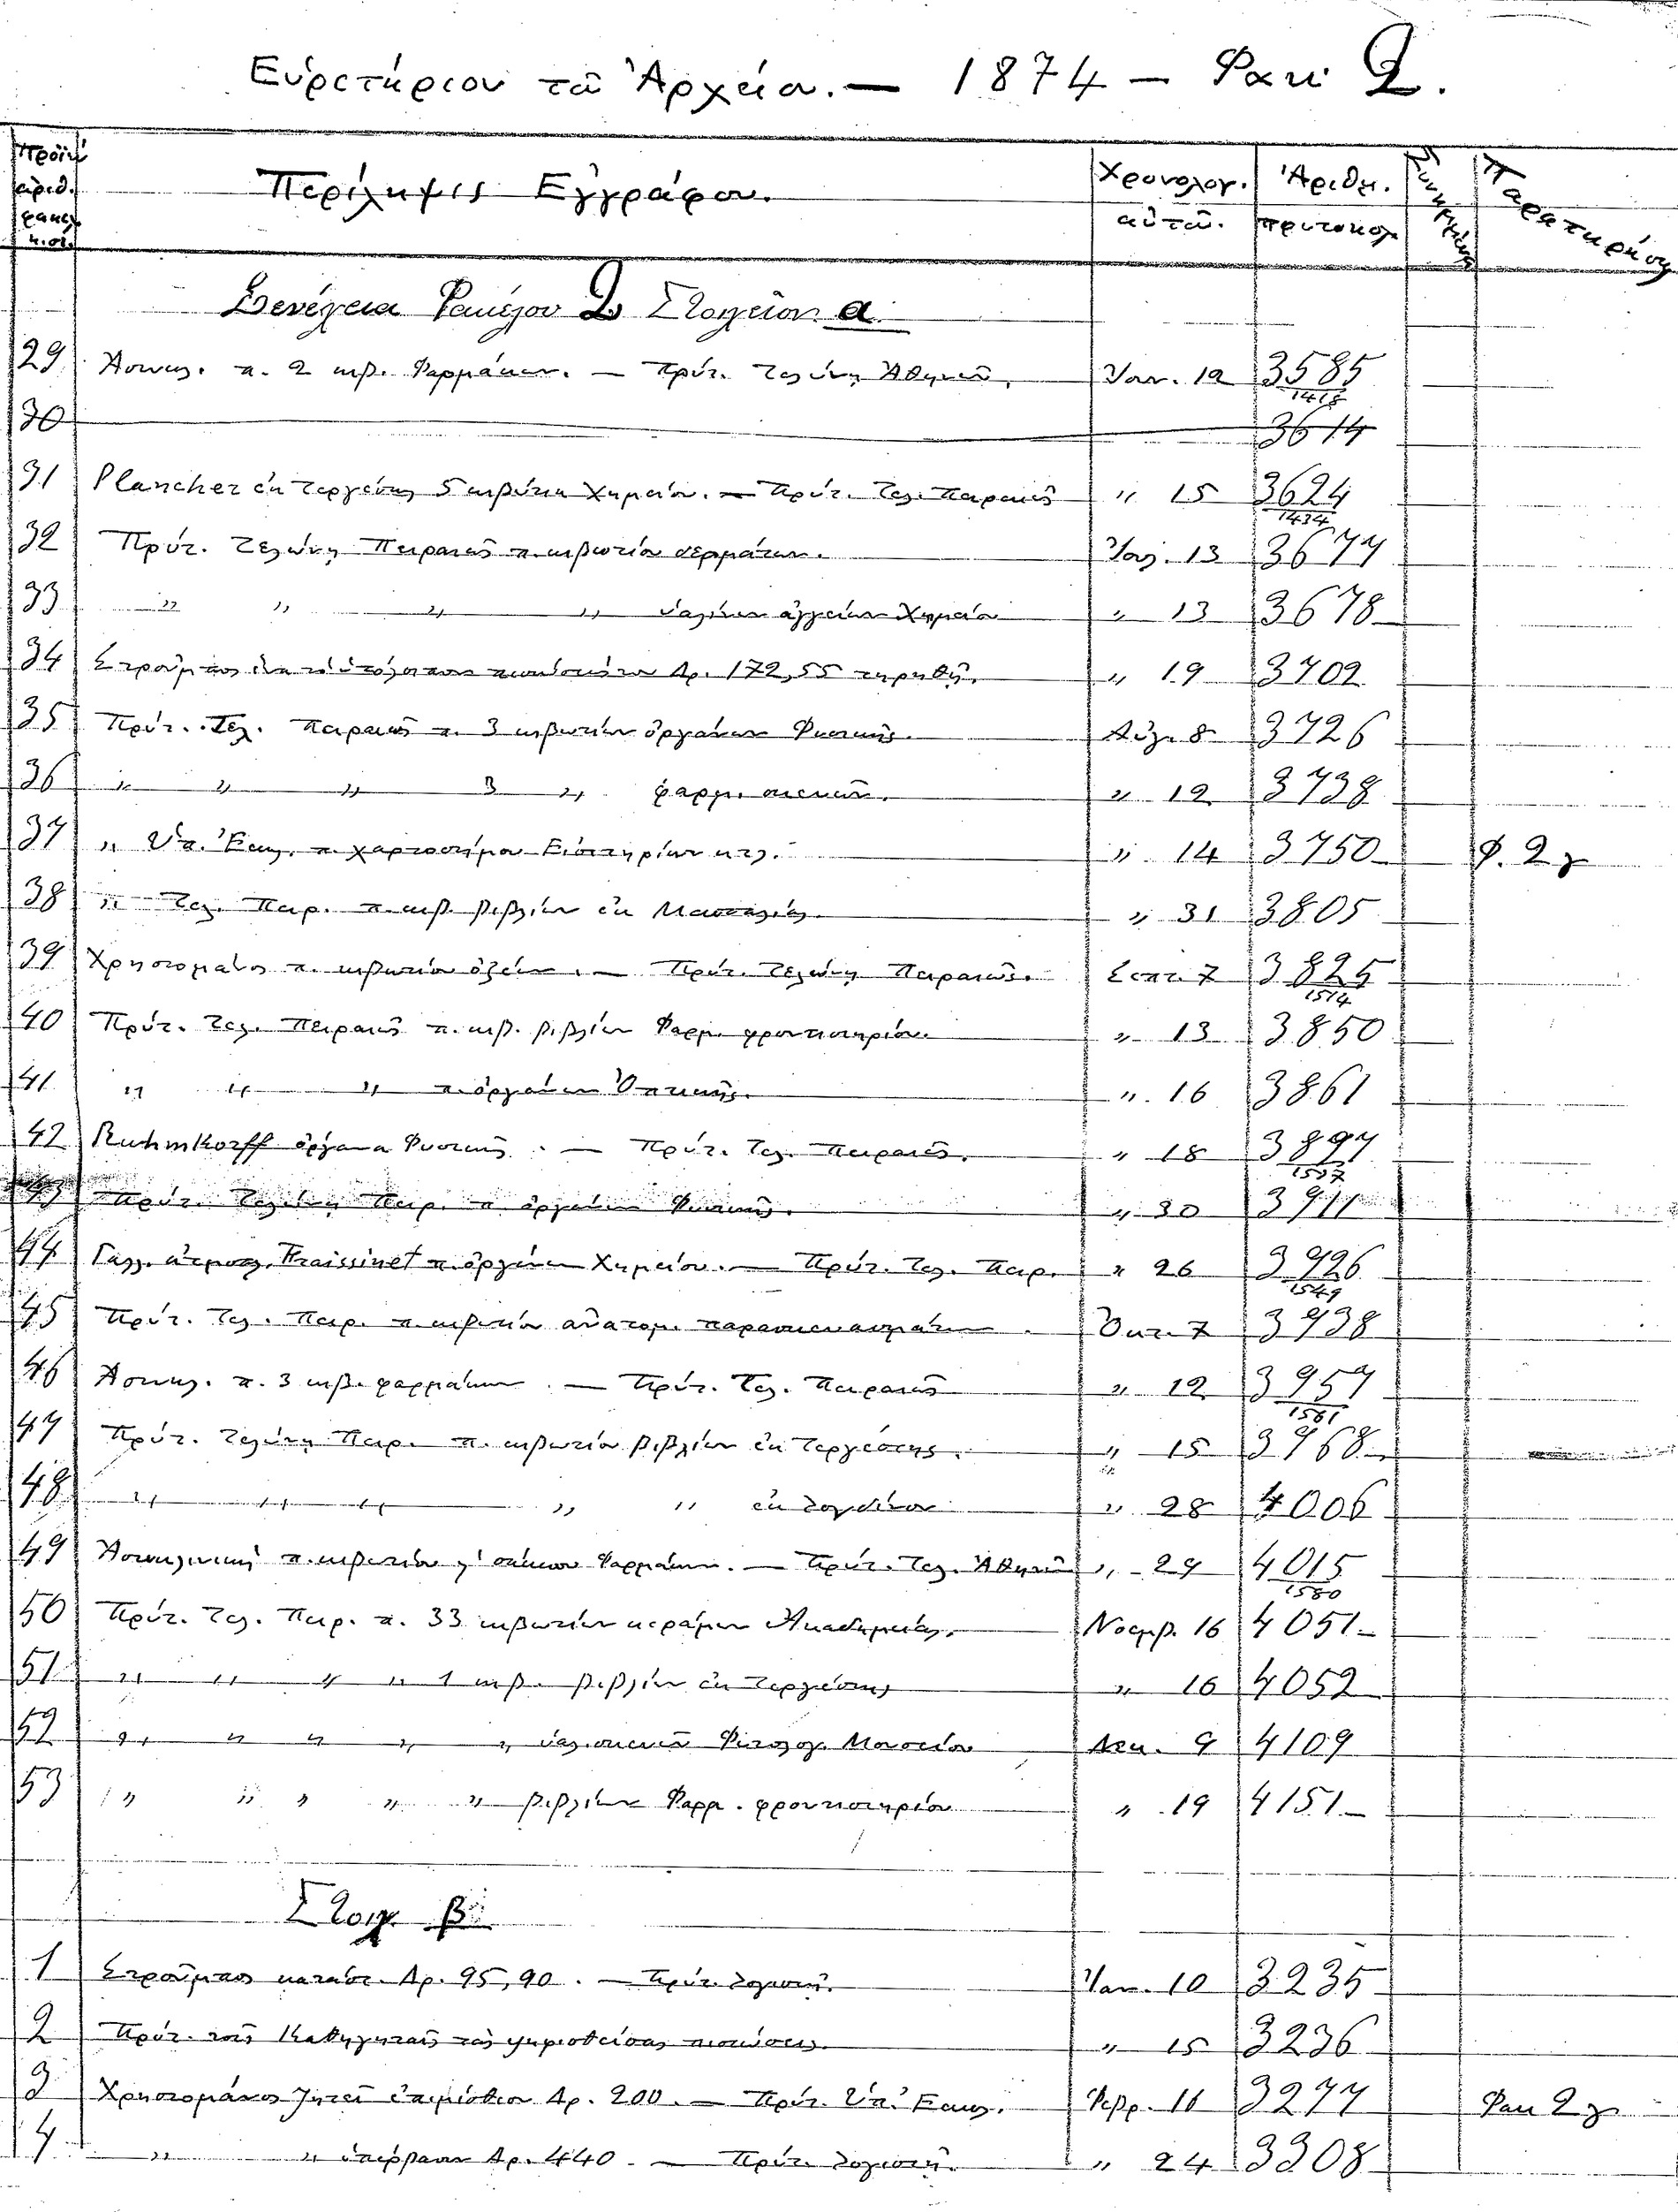 Εὑρετήριον τοῦ Ἀρχείου. — 1874 — Φακ 2.
Περίληψις Ἐγγράφου. Χρονολογ. αὐτοῦ. Ἀριθμ. πρωτοκολ. Παρατηρήσ
Συνέχεια Φακέλου 2 Στοιχείου α.
29 Ἀσκλη. π. 2 κιβ. Φαρμάκων. — Πρύτ. Τελώνη Ἀθηνῶν. Ἰαν. 12 3585
1418
30 3614
31 Plancher ἐκ Τεργέστης 5 κιβώτια Χημείου. — Πρύτ. Τελ. Πειραιῶς „ 15 3624
1434
32 Πρύτ. Τελώνη Πειραιῶς π. κιβωτίου δερμάτων. Ἰουλ. 13 3677
33 „ „ „ „ ὑαλίνων ἀγγείων Χημείου „ 13 3678
34 Δρ. 172,55 „ 19 3702
35 Πρύτ. Τελ. Πειραιῶς π. 3 κιβωτίων ὀργάνων Φυσικῆς. Αὐγ. 8 3726
36 „ „ „ 3 „ φαρμ. σκευῶν. „ 12 3738
37 „ Ὑπ. Ἐκκλ. π. χαρτοσήμου Εἰσιτηρίων κτλ. „ 14 3750 Φ. 2 γ
38 „ Τελ. Πειρ. π. κιβ. βιβλίων ἐκ Μασσαλίας. „ 31 3805
39 Χρηστομάνος π. κιβωτίου ὀξέων. — Πρύτ. Τελώνη Πειραιῶς. Σεπτ. 7 3825
1514
40 Πρύτ. Τελ. Πειραιῶς π. κιβ. βιβλίων Φαρμ. φροντιστηρίου. „ 13 3850
41 „ „ „ π. ὀργάνων Ὀπτικῆς. „ 16 3861
42 Ruhmkorff ὄργανα Φυσικῆς. — Πρύτ. Τελ. Πειραιῶς. „ 18 3897
1537
Πρύτ. Τελώνη Πειρ. π. ὀργάνων Φυσικῆς. „ 20 3911
44 Γαλλ. ἀτμοπλ. Fraissinet π. ὀργάνων Χημείου. — Πρύτ. Τελ. Πειρ. „ 26 3926
1549
45 Πρύτ. Τελ. Πειρ. π. κιβωτίου ἀνατομ. παρασκευασμάτων. Ὀκτ. 7 3938
46 Ἀσκλη. π. 3 κιβ. φαρμάκων. — Πρύτ. Τελ. Πειραιῶς „ 12 3957
1561
47 Πρύτ. Τελώνη Πειρ. π. κιβωτίου βιβλίων ἐκ Τεργέστης. „ 15 3968
48 „ „ „ „ „ ἐκ Λονδίνου „ 28 4006
49 π. κιβωτίου Φαρμάκων. — Πρύτ. Τελ. Ἀθηνῶν „ 29 4015
1580
50 Πρύτ. Τελ. Πειρ. π. 33 κιβωτίων κεράμων Ἀκαδημείας. Νοεμβ. 16 4051
51 „ „ „ „ 1 κιβ. βιβλίων ἐκ Τεργέστης „ 16 4052
52 „ „ „ „ „ Μουσείου Δεκ. 9 4109
53 „ „ „ „ „ βιβλίων Φαρμ. φροντιστηρίου „ 19 4151
Στοιχ β.
1 Δρ. 95,90. — Πρύτ. λογιστῇ. Ἰαν. 10 3235
2 Πρύτ. τοῖς Καθηγηταῖς τὰς ψηφισθείσας πιστώσεις. „ 15 3236
3 Χρηστομάνος ζητεῖ ἐπιμίσθιον Δρ. 200. — Πρύτ. Ὑπ. Ἐκκλ. Φεβρ. 16 3277 Φακ 2 γ
4 „ „ Δρ. 440. — Πρύτ. λογιστῇ. „ 24 3308